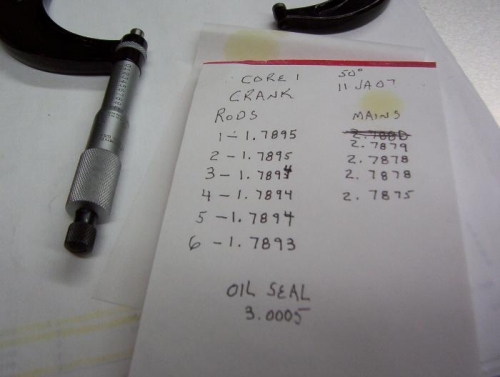 CORE 1 50°
CRANK 11 JA07
RODS MAINS
1 - 1.7895 2.7880
2 - 1.7895 2.7879
3 - 1.7894 2.7878
4 - 1.7894 2.7878
5 - 1.7894 2.7875
6 - 1.7893
OIL SEAL
3.0005